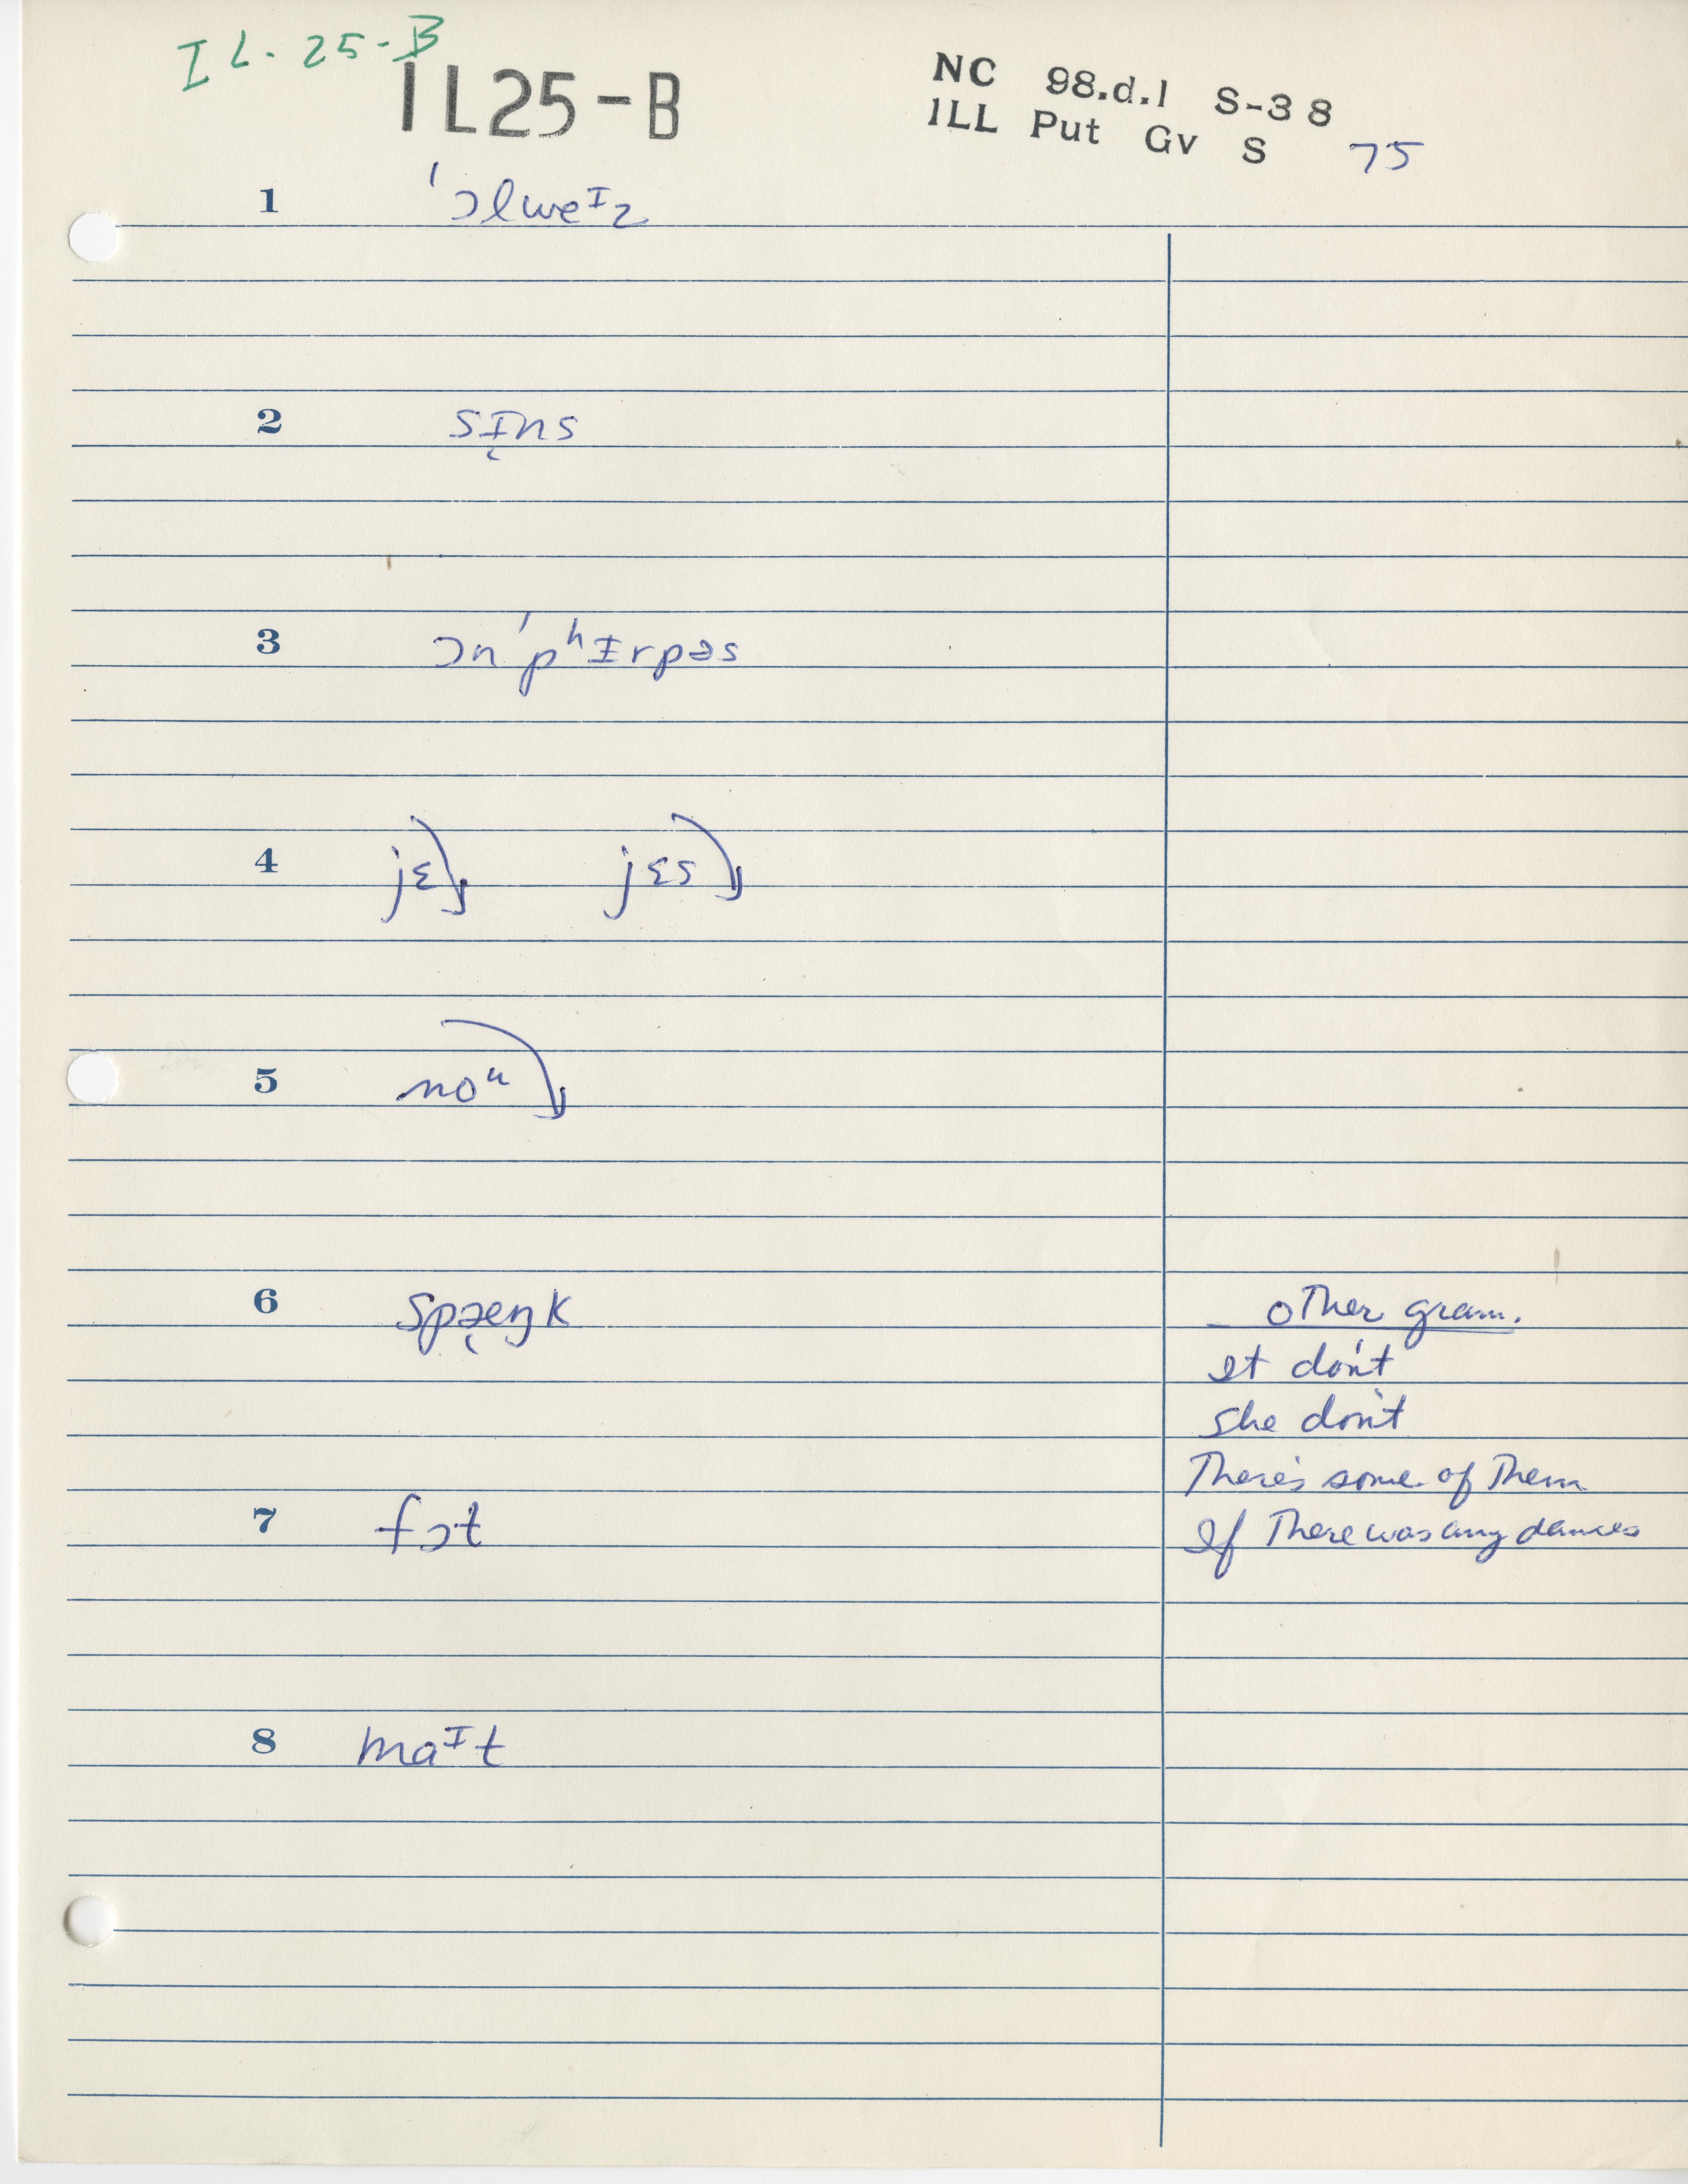 IL-25-B
IL25-B
NC 98.d.1 S-38
ILL Put Gv S 75
1 ˈɔlweᶦz
2 sɪ̜ns
3 ɔnˈpʰɪrpəs
4 jɛ jɛs
5 noᵘ
6 spæ̜ŋk
other gram.
It don't
She don't
There's some of them
7 fɔt
If there was any dances
8 maᶦt